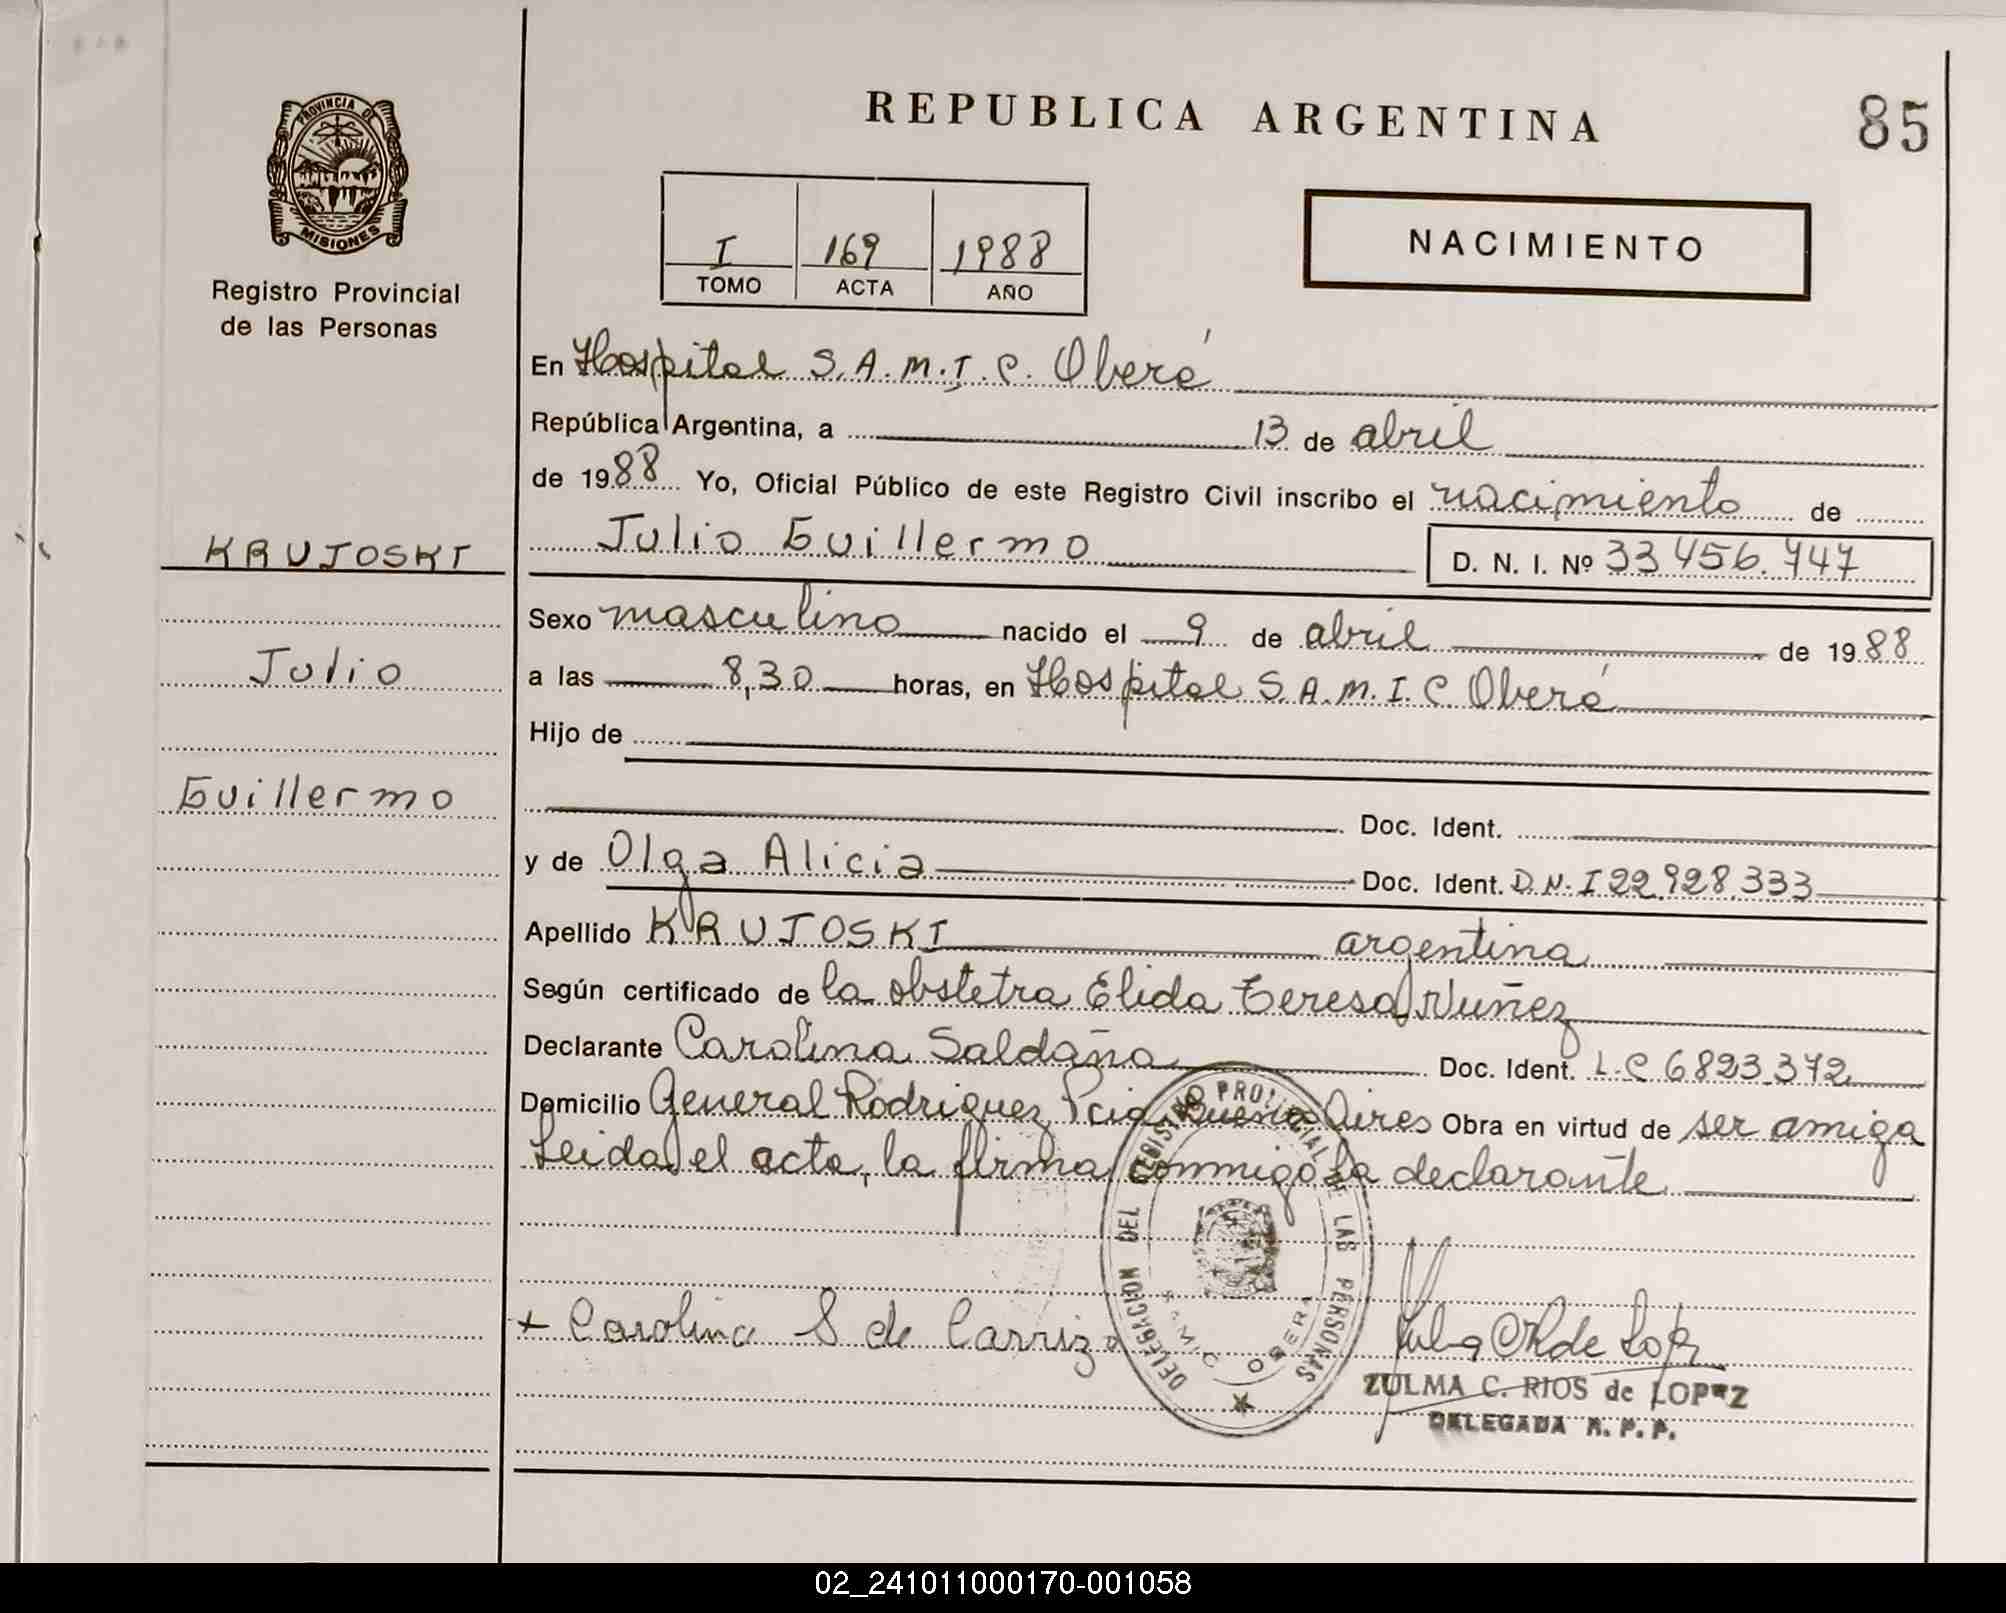 REPUBLICA ARGENTINA
85
PROVINCIA DE
MISIONES
Registro Provincial
de las Personas
I 169 1988
TOMO ACTA AÑO
NACIMIENTO
En Hospital S.A.M.I.C. Oberá
República Argentina, a 13 de abril
de 1988 Yo, Oficial Público de este Registro Civil inscribo el nacimiento de
Julio Guillermo D. N. I. Nº 33 456.747
KRUJOSKI
Julio
Guillermo
Sexo masculino nacido el 9 de abril de 1988
a las 8,30 horas, en Hospital S.A.M.I.C. Oberá
Hijo de
Doc. Ident.
y de Olga Alicia Doc. Ident. D.N.I 22.928.333
Apellido KRUJOSKI argentina
Según certificado de la obstetra Elida Teresa Nuñez
Declarante Carolina Saldaña Doc. Ident. L.C 6823.372
Domicilio General Rodriguez Pcia Buenos Aires Obra en virtud de ser amiga
Leida el acta, la firma conmigo la declarante
DELEGACION DEL REGISTRO PROVINCIAL DE LAS PERSONAS
SAMIC OBERA
+ Carolina S de Carrizo
ZULMA C. RIOS de LOPEZ
DELEGADA R. P. P.
02_241011000170-001058